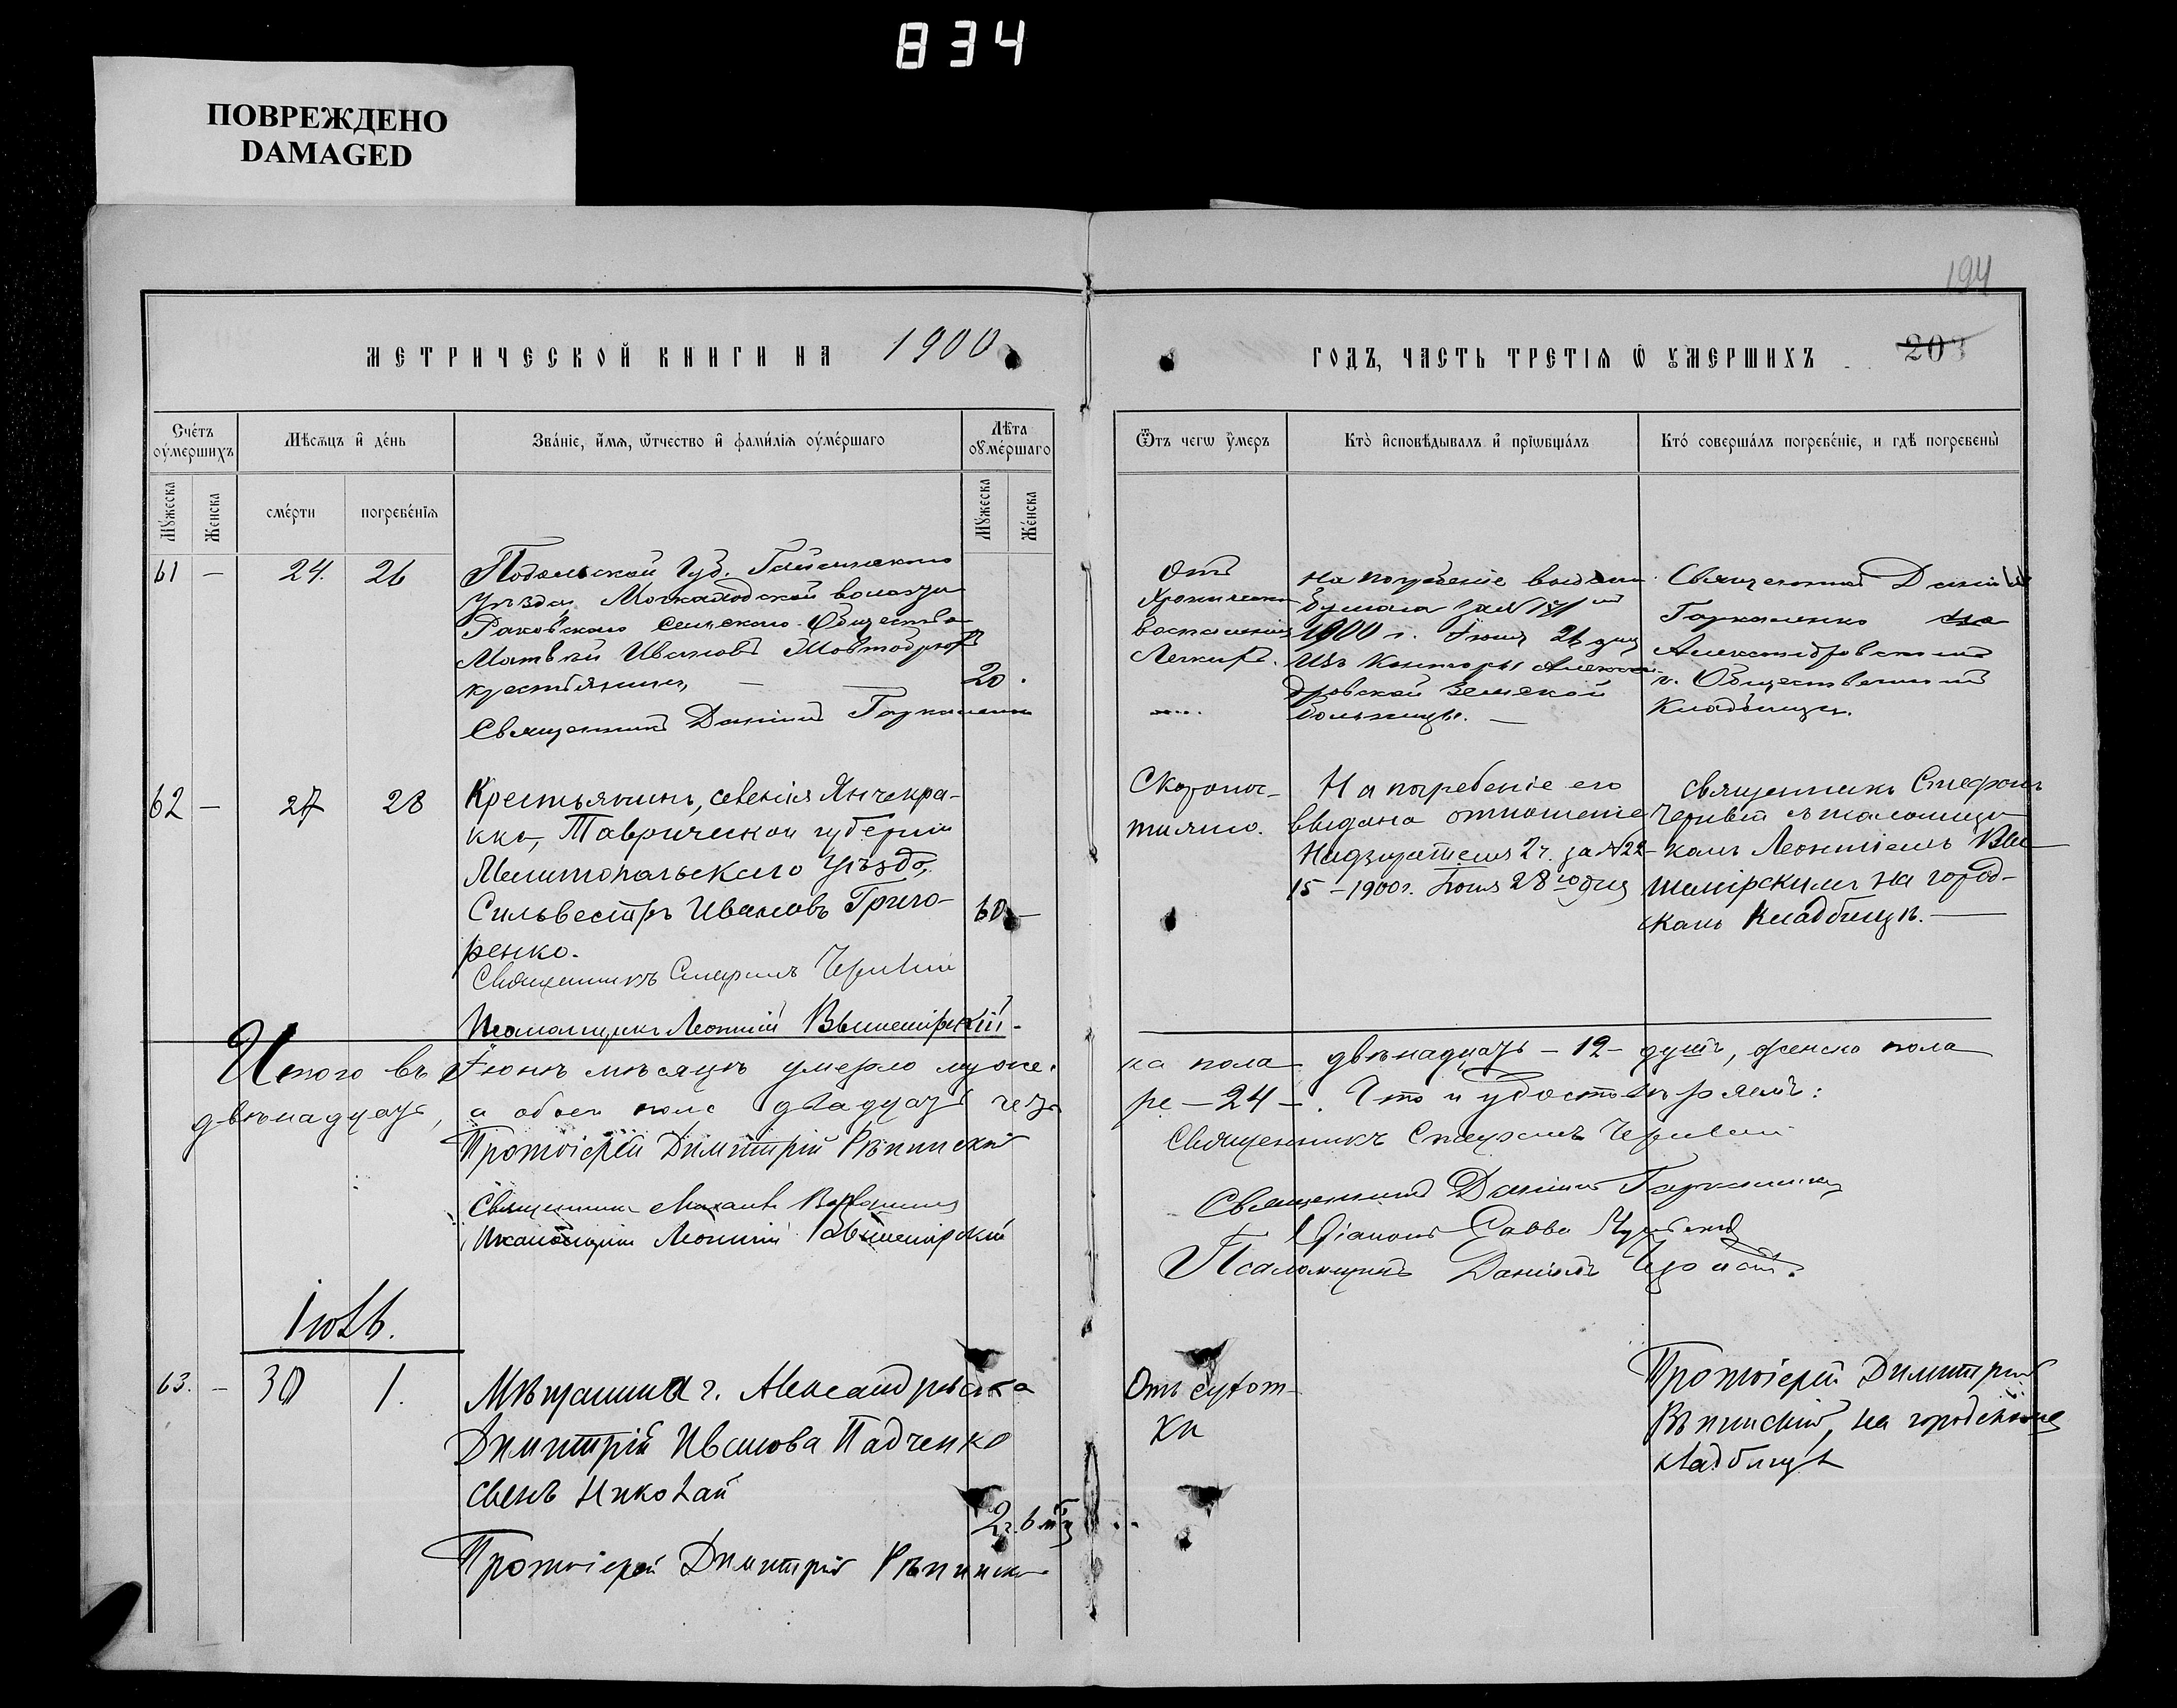 834
ПОВРЕЖДЕНО
DAMAGED
194
МЕТРИЧЕСКОЙ КНИГИ НА 1900
ГОДЪ, ЧАСТЬ ТРЕТІЯ Ѿ ОУМЕРШИХЪ 203
Счетъ оумершихъ
Мѣсяцъ и день
Званіе, имя, ѿтчество и фамилія оумершаго
Лѣта оумершаго
Мужеска
Женска
смерти
погребенія
Мужеска
Женска
Ѿтъ чегѡ умеръ
Кто исповѣдывалъ и пріѡбщалъ
Кто совершалъ погребеніе, и гдѣ погребены
61 — 24. 26
Подольской Губ. Гайсинскаго
уѣзда, волости
Раковскаго Сельскаго Общества
Матвѣй Ивановъ
крестьянинъ, — 20.
Священникъ Даніилъ
Отъ
Хроническ
воспаленія
Легкихъ.
На погребеніе выдана
бумага за №
1900 г. Іюня 26 дня
Изъ Конторы Алексан-
дровской Земской
больницы. —
Священникъ Даніилъ
на
Александровскомъ
г. Общественномъ
Кладбищѣ.
62 — 27 28
Крестьянинъ, селенія Янчекра-
ка, Таврической губерніи
Мелитопольскаго уѣзда,
Сильвестръ Ивановъ Григо-
ренко. 60 —
Священникъ Стефанъ
Псаломщикъ Леонтій Вышемірскій.
Скоропос-
тижно.
На погребеніе его
выдана отношеніе
Надзирателя 2 ч. за № 22-
15 — 1900 г. Іюня 28го дня
Священникъ Стефанъ
съ псаломщи-
комъ Леонтіемъ Вы-
шемірскимъ на город-
скомъ кладбищѣ. —
Итого въ Іюнѣ мѣсяцѣ умерло муже.
ка пола двѣнадцать — 12 — душъ, женска пола
двѣнадцать, а обоего пола двадцать четы
ре — 24 —. Что и удостовѣряемъ:
Протоіерей Димитрій Рѣпинскій
Священникъ Михаилъ
Псаломщикъ Леонтій Вышемірскій
Священникъ Стефанъ
Священникъ Даніилъ
Діаконъ Савва
Псаломщикъ Даніилъ
Іюль.
63. — 30 1.
Мѣщанина г. Александровска
Димитрій Иванова Падченко
сынъ Николай
2 г. 6 мц
Протоіерей Димитрій Рѣпинскій
Отъ сухот-
ки
Протоіерей Димитрій
Рѣпинскій, на городскомъ
кладбищѣ